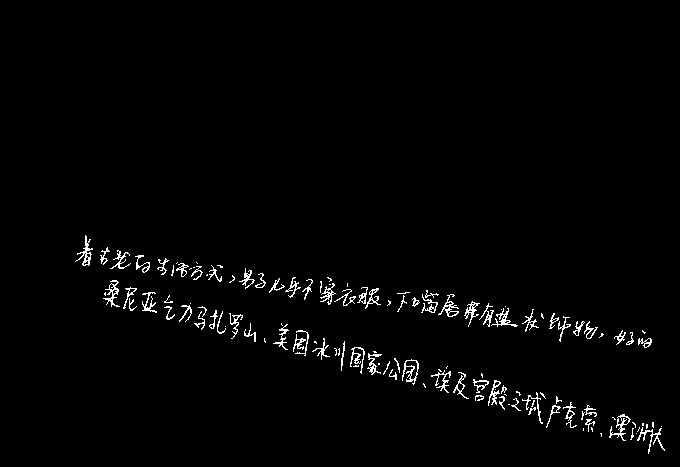 着古老的生活方式,男子几乎不穿衣服,下嘴唇都有盘状饰物,好的
桑尼亚乞力马扎罗山、美国冰川国家公园、埃及宫殿之城卢克索、澳洲大